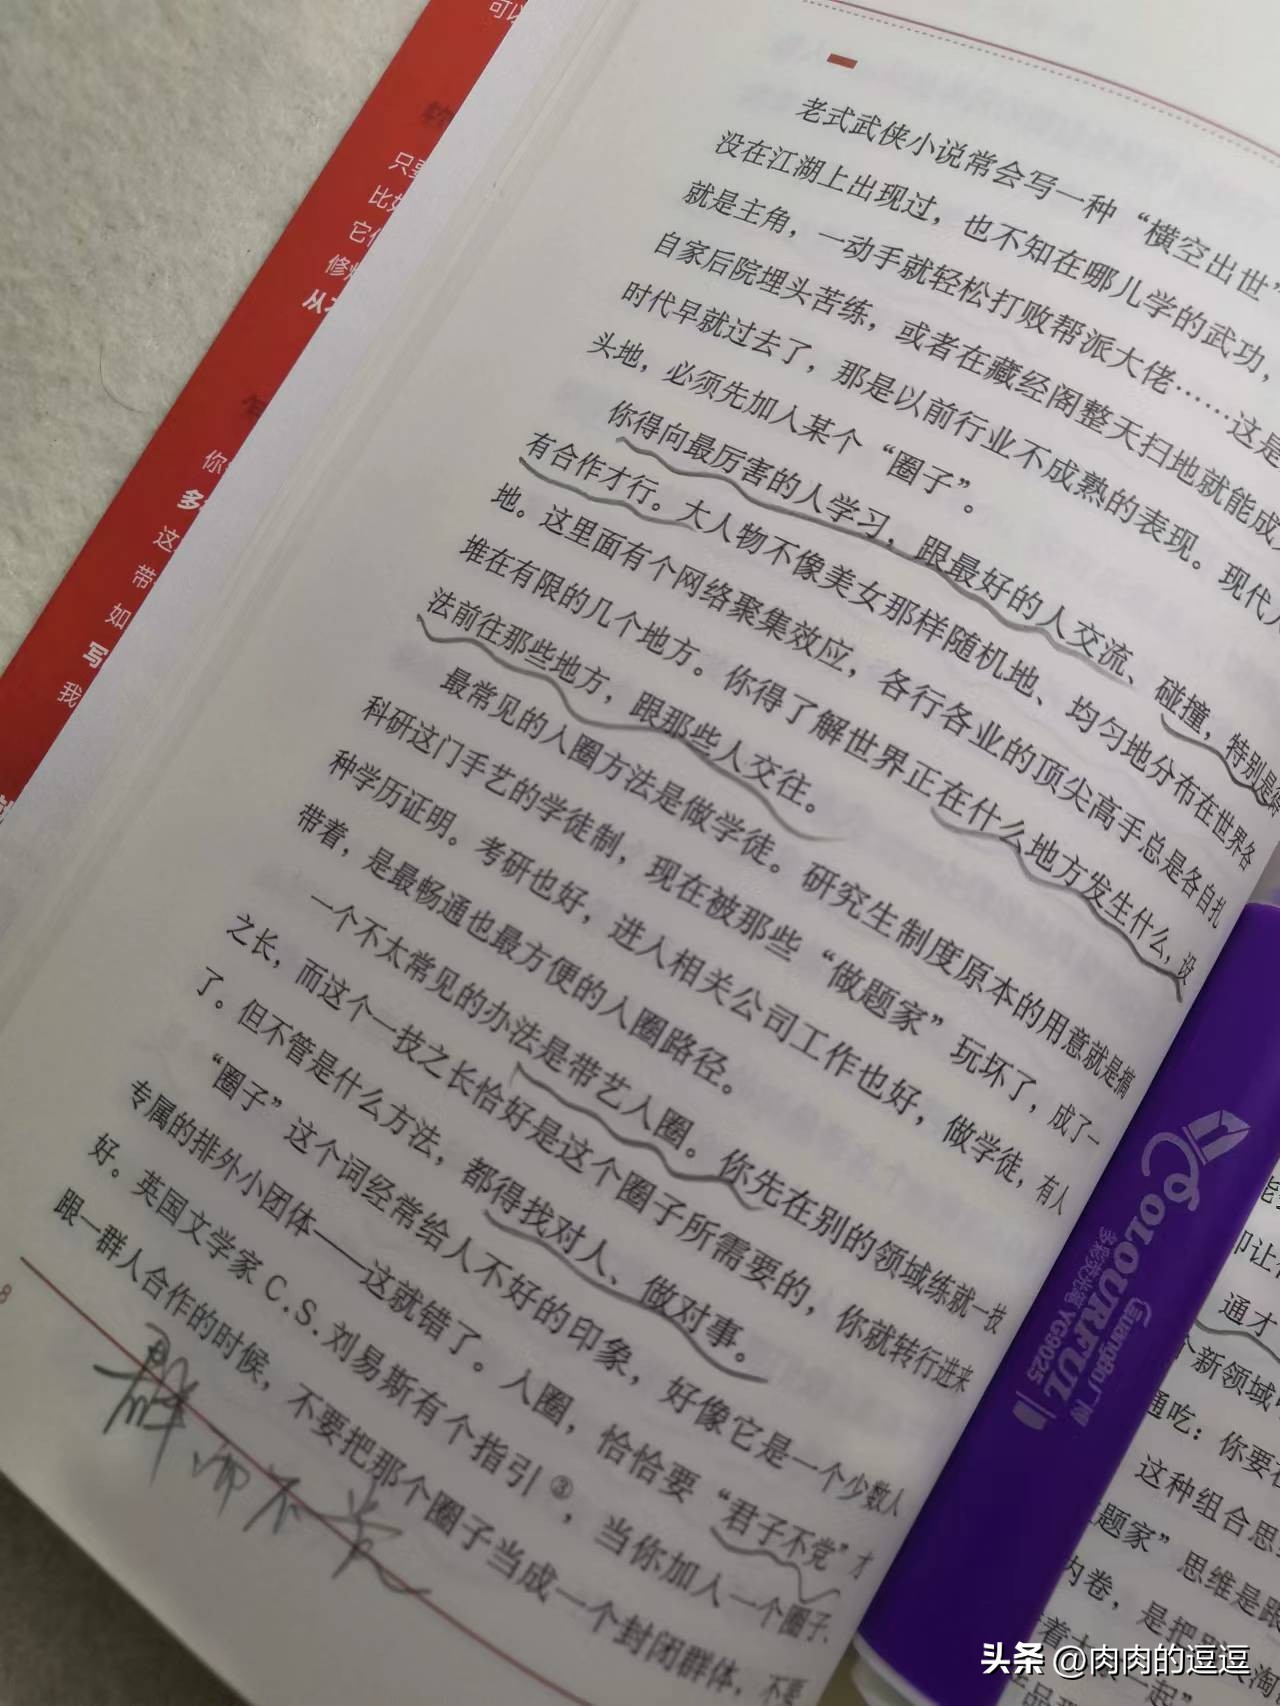 一
老式武侠小说常会写一种“横空出世”
没在江湖上出现过，也不知在哪儿学的武功，
就是主角，一动手就轻松打败帮派大佬……这是
自家后院埋头苦练，或者在藏经阁整天扫地就能成
时代早就过去了，那是以前行业不成熟的表现。现代
头地，必须先加入某个“圈子”。
你得向最厉害的人学习，跟最好的人交流、碰撞，特别是
有合作才行。大人物不像美女那样随机地、均匀地分布在世界各
地。这里面有个网络聚集效应，各行各业的顶尖高手总是各自扎
堆在有限的几个地方。你得了解世界正在什么地方发生什么，设
法前往那些地方，跟那些人交往。
最常见的入圈方法是做学徒。研究生制度原本的用意就是搞
科研这门手艺的学徒制，现在被那些“做题家”玩坏了，成了一
种学历证明。考研也好，进入相关公司工作也好，做学徒，有人
带着，是最畅通也最方便的入圈路径。
一个不太常见的办法是带艺入圈。你先在别的领域练就一技
之长，而这个一技之长恰好是这个圈子所需要的，你就转行进来
了。但不管是什么方法，都得找对人、做对事。
“圈子”这个词经常给人不好的印象，好像它是一个少数人
专属的排外小团体——这就错了。入圈，恰恰要“君子不党”才
好。英国文学家C.S.刘易斯有个指引③，当你加入一个圈子、
跟一群人合作的时候，不要把那个圈子当成一个封闭群体，不要
8
可以
只要
比如
它
修炼
从
你
多
这
带
如
写
我
COLOURFUL
GuangBo广博
多彩荧光笔 YC9025
即让
通才
个新领域
通吃：你要在
这种组合思
题家”思维是跟
内卷，是把
一起”
头条 @肉肉的逗逗